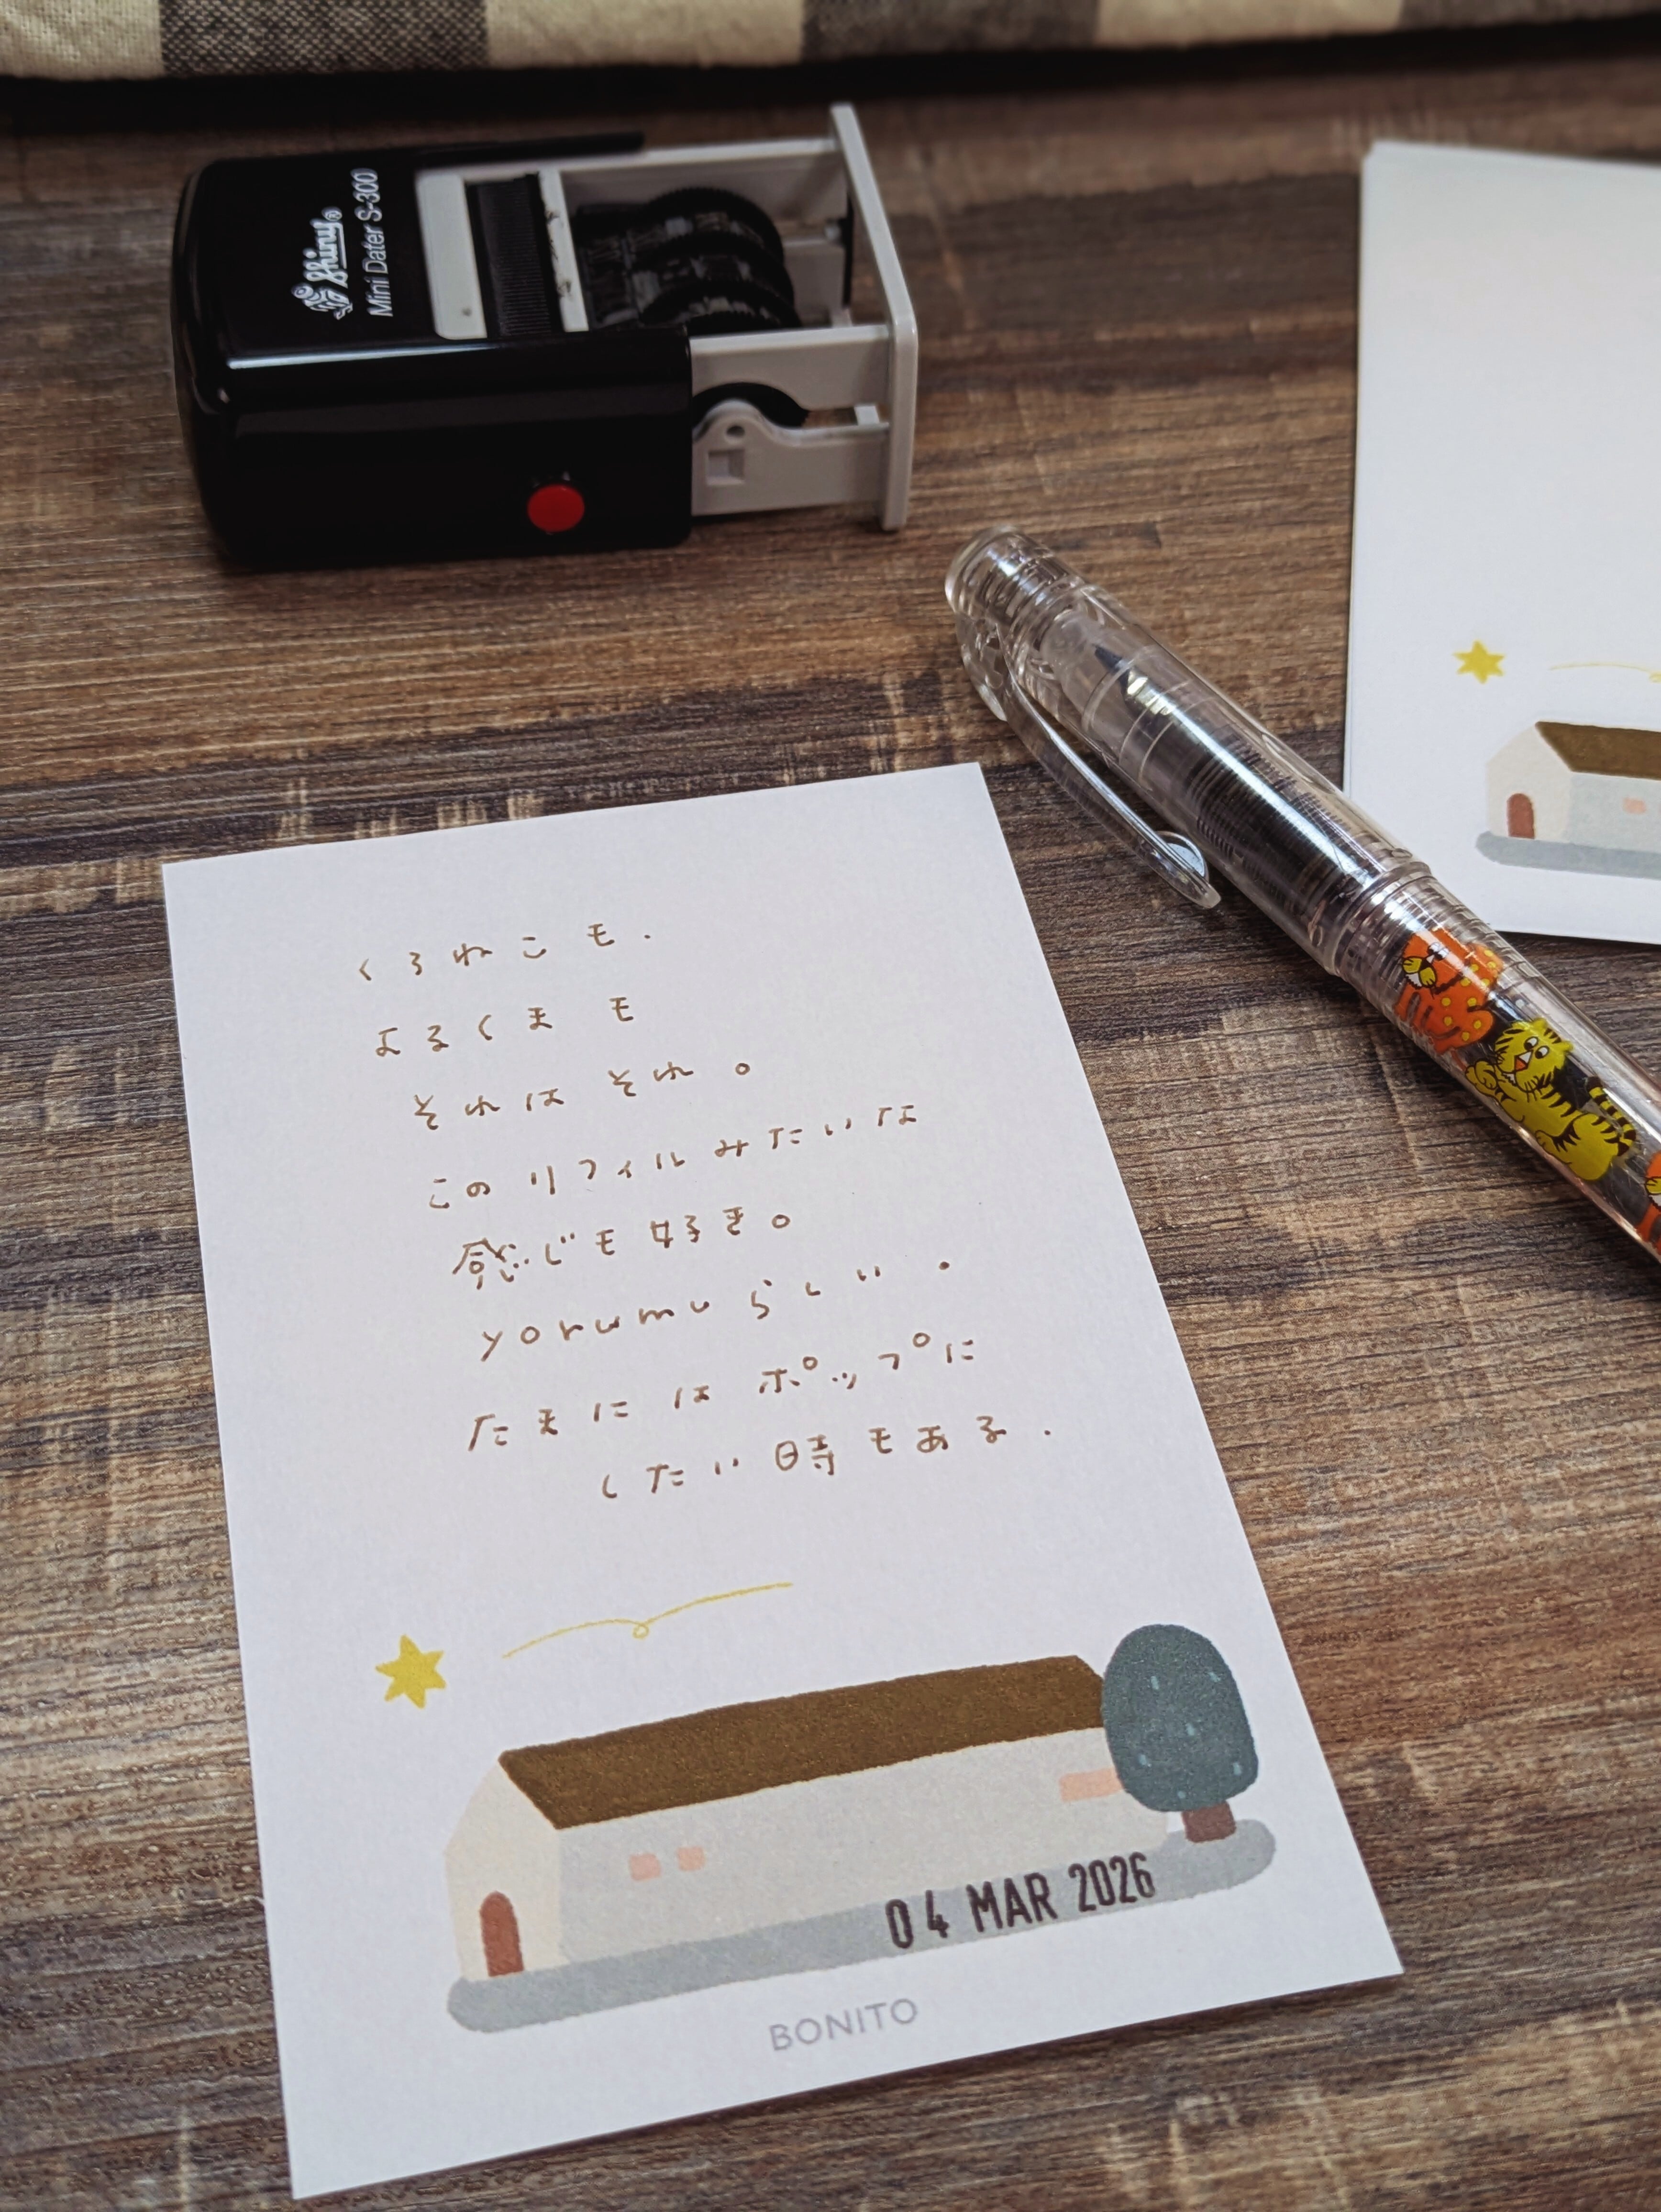 Shiny®
Mini Dater S-300
くろねこも.
よるくまも
それはそれ。
このリフィルみたいな
感じも好き。
yorumuらしい.
たまにはポップに
したい時もある.
04 MAR 2026
BONITO